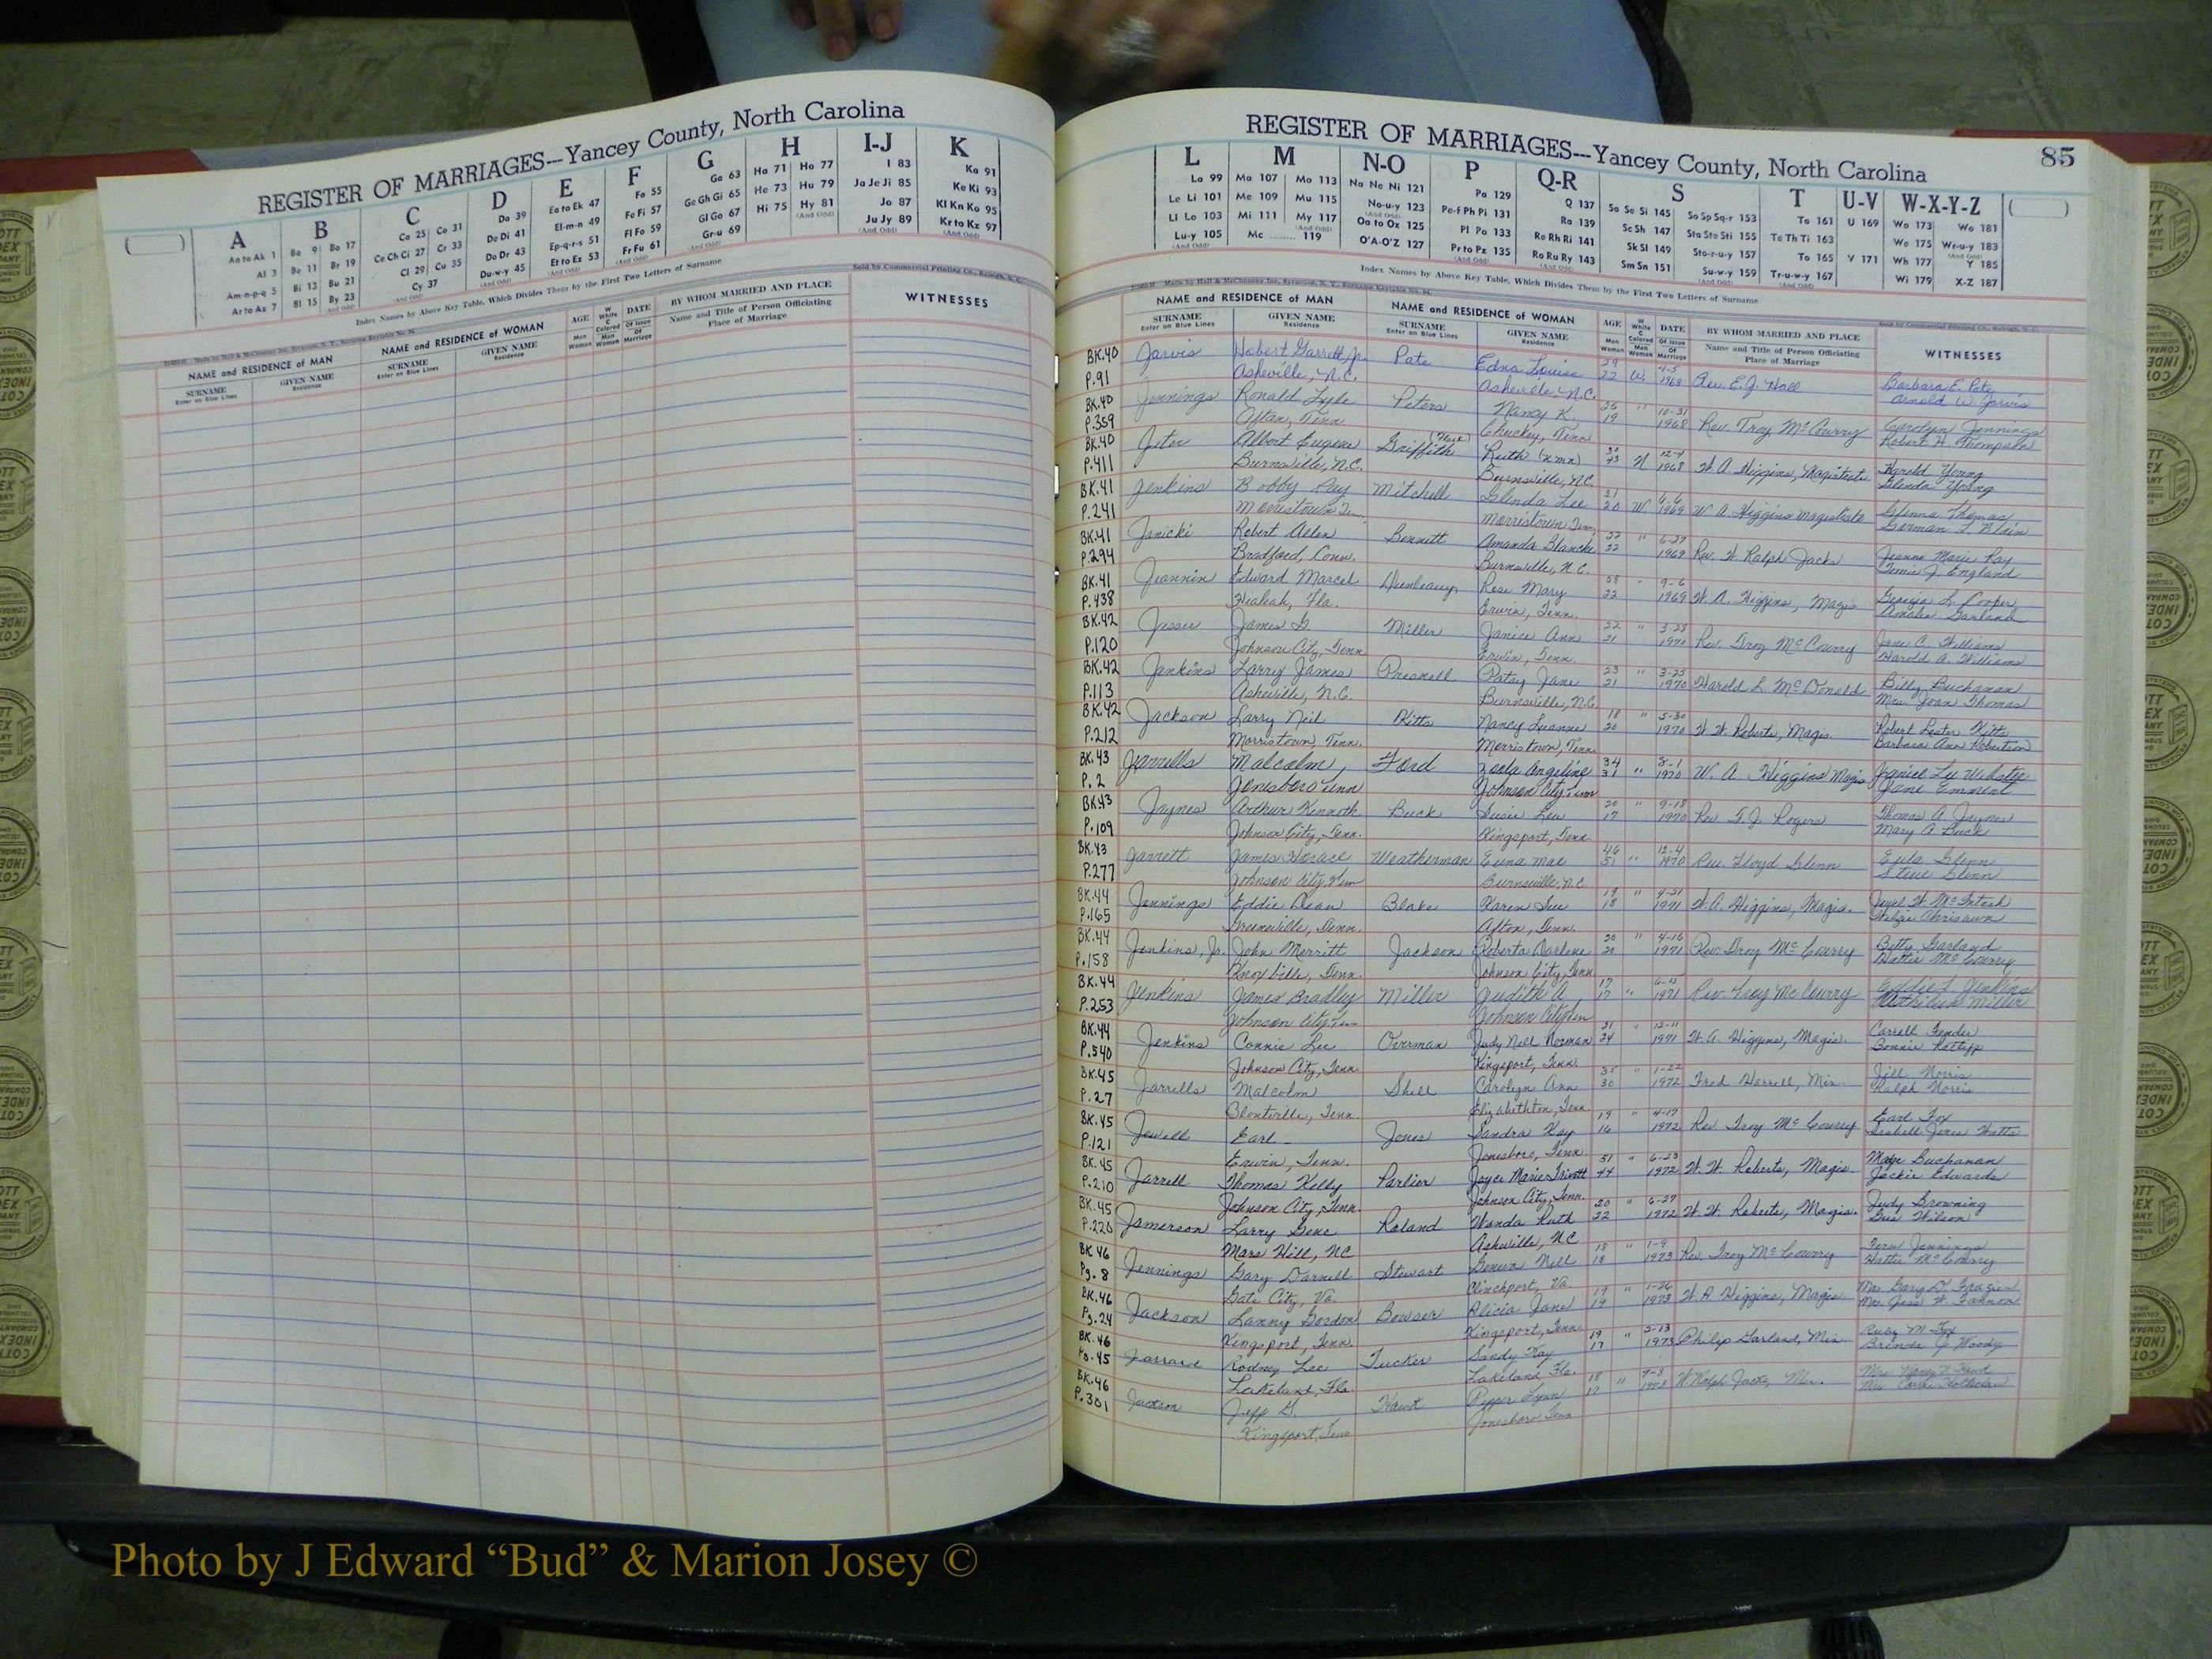 REGISTER OF MARRIAGES---Yancey County, North Carolina
( ) A B C D E F G H I-J K
Aa to Ak 1 Ba 9 Bo 17 Ca 25 Co 31 Da 39 Ea to Ek 47 Fa 55 Ga 63 Ha 71 Ho 77 I 83 Ka 91
Al 3 Be 11 Br 19 Ce Ch Ci 27 Cr 33 De Di 41 El-m-n 49 Fe Fi 57 Ge Gh Gi 65 He 73 Hu 79 Ja Je Ji 85 Ke Ki 93
Am-n-p-q 5 Bi 13 Bu 21 Cl 29 Cu 35 Do Dr 43 Ep-q-r-s 51 Fl Fo 59 Gl Go 67 Hi 75 Hy 81 Jo 87 Kl Kn Ko 95
Ar to Az 7 Bl 15 By 23 Cy 37 Du-w-y 45 Et to Ez 53 Fr Fu 61 Gr-u 69 (And Odd) Ju Jy 89 Kr to Kz 97
(And Odd)
Index Names by Above Key Table, Which Divides Them by the First Two Letters of Surname
Sold by Commercial Printing Co., Raleigh, N. C.
NAME and RESIDENCE of MAN
SURNAME
Enter on Blue Lines
GIVEN NAME
Residence
NAME and RESIDENCE of WOMAN
SURNAME
Enter on Blue Lines
GIVEN NAME
Residence
AGE
Man
Woman
W
White
C
Colored
Man
Woman
DATE
Of Issue
Of
Marriage
BY WHOM MARRIED AND PLACE
Name and Title of Person Officiating
Place of Marriage
WITNESSES
REGISTER OF MARRIAGES---Yancey County, North Carolina
85
L M N-O P Q-R S T U-V W-X-Y-Z ( )
La 99 Ma 107 Mo 113 Na Ne Ni 121 Pa 129 Q 137 Sa Se Si 145 So Sp Sq-r 153 Ta 161 U 169 Wa 173 Wo 181
Le Li 101 Me 109 Mu 115 No-u-y 123 Pe-f Ph Pi 131 Ra 139 Sc Sh 147 Sta Ste Sti 155 Te Th Ti 163 We 175 Wr-u-y 183
Ll Lo 103 Mi 111 My 117 Oa to Ox 125 Pl Po 133 Re Rh Ri 141 Sk Sl 149 Sto-r-u-y 157 To 165 V 171 Wh 177 Y 185
Lu-y 105 Mc 119 O'A-O'Z 127 Pr to Pz 135 Ro Ru Ry 143 Sm Sn 151 Su-w-y 159 Tr-u-w-y 167 Wi 179 X-Z 187
Index Names by Above Key Table, Which Divides Them by the First Two Letters of Surname
NAME and RESIDENCE of MAN
SURNAME
Enter on Blue Lines
GIVEN NAME
Residence
NAME and RESIDENCE of WOMAN
SURNAME
Enter on Blue Lines
GIVEN NAME
Residence
AGE
Man
Woman
W
White
C
Colored
Man
Woman
DATE
Of Issue
Of
Marriage
BY WHOM MARRIED AND PLACE
Name and Title of Person Officiating
Place of Marriage
WITNESSES
BK.40 Jarvis Hobert Garrett, Jr. Pate Edna Louise 29 W. 4-5 Rev. E. J. Hall Barbara E. Pate
P.91 Asheville, N.C. Asheville, N.C. 22 1968 Arnold W. Jarvis
BK.40 Jennings Ronald Lyle Peters Nancy K. 26 " 10-31 Rev. Troy McCourry Carolyn Jennings
P.359 Afton, Tenn. Chuckey, Tenn 19 1968 Robert H. Thompson
BK.40 Jeter Albert Eugene Griffith Ruth 12-1 W. A. Higgins, Magistrate Harold Young
P.411 Burnsville, N.C. Burnsville, N.C. 43 1968 Glenda Young
BK.41 Jenkins Bobby Ray Mitchell Glenda Lee 21 W 6-6 W A Higgins Magistrate Glenna Thomas
P.241 Morristown Tenn. Morristown Tenn 20 1969
BK.41 Janicki Robert Allen Bennett Amanda Blanche 22 " 6-27 Rev. W. Ralph Jacks Jeanne Marie Ray
P.294 Bradford, Conn. Burnsville, N.C. 22 1969 England
BK.41 Jeannin Edward Marcel Dunleavy Rose Mary " 9-6 W. A. Higgins, Magis Georgia L. Cooper
P.438 Hialeah, Fla. Erwin, Tenn. 22 1969 Garland
BK.42 Jessee James G Miller Janice Ann 22 " 3-23 Rev. Troy McCourry Jane C. Williams
P.120 Johnson City, Tenn Erwin, Tenn. 21 1970 Harold A. Williams
BK.42 Jenkins Larry James Presnell Patsy Jane 23 " 3-25 Harold L. McDonald Billy Buchanan
P.113 Asheville, N.C. Burnsville, N.C. 21 1970 Mrs. Joan Thomas
BK.42 Jackson Larry Neil Kitts Nancy Luanne 18 " 5-30 W. W. Roberts, Magis. Robert Lester Kitts
P.212 Morristown, Tenn. Morristown, Tenn 20 1970 Barbara Ann Robertson
BK.43 Jarrells Malcolm Ford Zeola Angeline 34 " 8-1 W. A Higgins Magis Janice Lee Webster
P.2 Jonesboro Tenn Johnson City Tenn 31 1970 Jane Emmert
BK.43 Jaynes Arthur Kenneth Buck Susie Lea 20 " 9-18 Rev F. J. Rogers Thomas A. Jaynes
P.109 Johnson City, Tenn. Kingsport, Tenn. 17 1970 Mary A. Buck
BK.43 Garrett James Horace Weatherman Edna Mae 46 " 12-4 Rev. Floyd Glenn Eula Glenn
P.277 Johnson City, Tenn Burnsville, N.C 51 1970 Steve Glenn
BK.44 Jennings Eddie Dean Blake Karen Sue 19 " 4-21 W. A. Higgins, Magis. Jewel W. McIntosh
P.165 Greeneville, Tenn. Afton, Tenn. 18 1971 Chrisawn
BK.44 Jenkins, Jr. John Merritt Jackson Roberta Darlene 20 " 4-16 Rev. Troy McCourry Betty Garland
P.158 Knoxville, Tenn. Johnson City, Tenn 20 1971 Hattie McCourry
BK.44 Jenkins James Bradley Miller Judith A 17 " 6-15 Rev Troy McCurry Eddie L. Jenkins
P.253 Johnson City, Tenn Johnson City Tenn 17 1971 Miller
BK.44 Jenkins Connie Lee Overman Judy Nell Norman 31 " 12-11 W. A. Higgins, Magis. Carroll Fender
P.540 Johnson City, Tenn. Kingsport, Tenn. 24 1971 Bonnie Ratliff
BK.45 Jarrells Malcolm Shell Carolyn Ann 35 " 1-22 Fred Harrell, Min. Jill Norris
P.27 Blountville, Tenn. Elizabethton, Tenn 30 1972 Ralph Norris
BK.45 Jewell Earl Jones Sandra Kay 19 " 4-17 Rev Troy McCourry Earl Fox
P.121 Erwin, Tenn. Jonesboro, Tenn. 16 1972 Isabell Jones Watts
BK.45 Jarrell Thomas Kelly Parlier Joyce Marie Trivett 51 " 6-23 W. W. Roberts, Magis. Madge Buchanan
P.210 Johnson City, Tenn. Johnson City, Tenn. 44 1972 Jackie Edwards
BK.45 Jamerson Larry Gene Roland Wanda Ruth 20 " 6-27 W. W. Roberts, Magis. Judy Browning
P.220 Mars Hill, NC Asheville, NC 22 1972 Gus Wilson
BK 46 Jennings Gary Darnell Stewart Nell 18 " 1-9 Rev. Troy McCourry Fern Jennings
Pg. 8 Gate City, Va. Clinchport, Va. 18 1973 Hattie McCourry
BK.46 Jackson Lanny Gordon Bowser Alicia Jane 19 " 1-26 W. A Higgins, Magis Mrs. Gary D. Frazier
Pg.24 Kingsport, Tenn. Kingsport, Tenn 19 1973 Mrs. Jess W. Fannon
BK.46 Jarrard Rodney Lee Tucker Sandy Kay 19 " 2-13 Philip Garland, Min Ruby M. Fox
Pg.45 Lakeland, Fla. Lakeland, Fla. 17 1973 Brenda J Woody
BK.46 Jackson Jeff G. Pepper Lynn 18 " 9-3 W. Ralph Jacks, Min.
P.301 Kingsport, Tenn Jonesboro, Tenn 17
Photo by J Edward “Bud” & Marion Josey ©